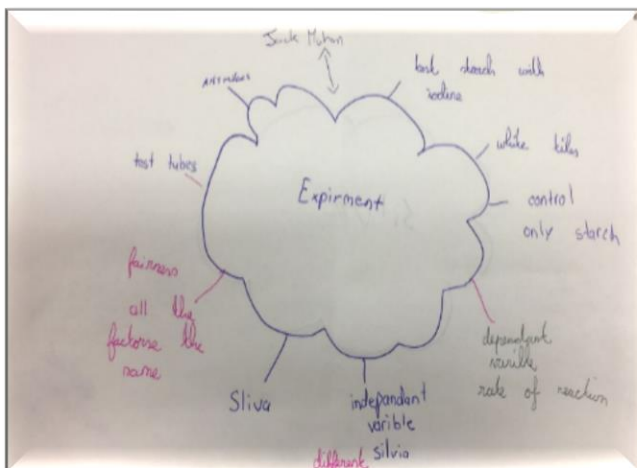 test starch with
iodine
white tiles
control
only starch
dependant
varible
rate of reaction
independant
varible
silvia
different
Sliva
fairness
all the
factorse the
same
test tubes
Expirment